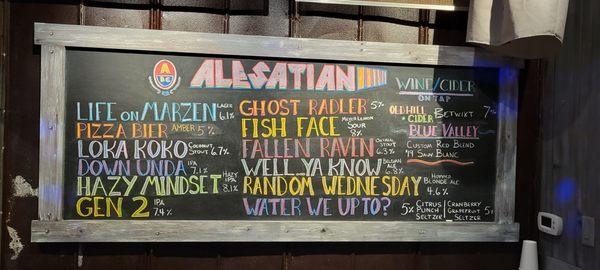 ABC
ALESATIAN
LIFE ON MARZEN LAGER 6.1%
PIZZA BIER AMBER 5%
LOKA KOKO COCONUT STOUT 6.7%
DOWN UNDA IPA 7.1%
HAZY MINDSET HAZY IPA 8.1%
GEN 2 IPA 7.4%
GHOST RADLER 5%
FISH FACE MEYER LEMON SOUR 8%
FALLEN RAVEN STOUT 6.3%
WELL YA KNOW BELGIAN ALE 6.8%
RANDOM WEDNESDAY HOPPED BLONDE ALE 4.6%
WATER WE UP TO? 5% CITRUS PUNCH SELTZER | CRANBERRY GRAPEFRUIT SELTZER 5%
WINE/CIDER
ON TAP
OLD HILL CIDER BETWIXT 7%
BLUE VALLEY
CUSTOM RED BLEND
'19 SAUV BLANC